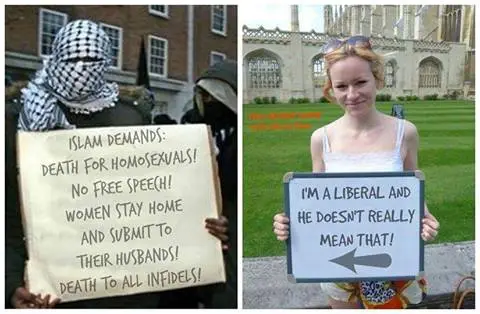 ISLAM DEMANDS:
DEATH FOR HOMOSEXUALS!
NO FREE SPEECH!
WOMEN STAY HOME
AND SUBMIT TO
THEIR HUSBANDS!
DEATH TO ALL INFIDELS!
I'M A LIBERAL AND
HE DOESN'T REALLY
MEAN THAT!